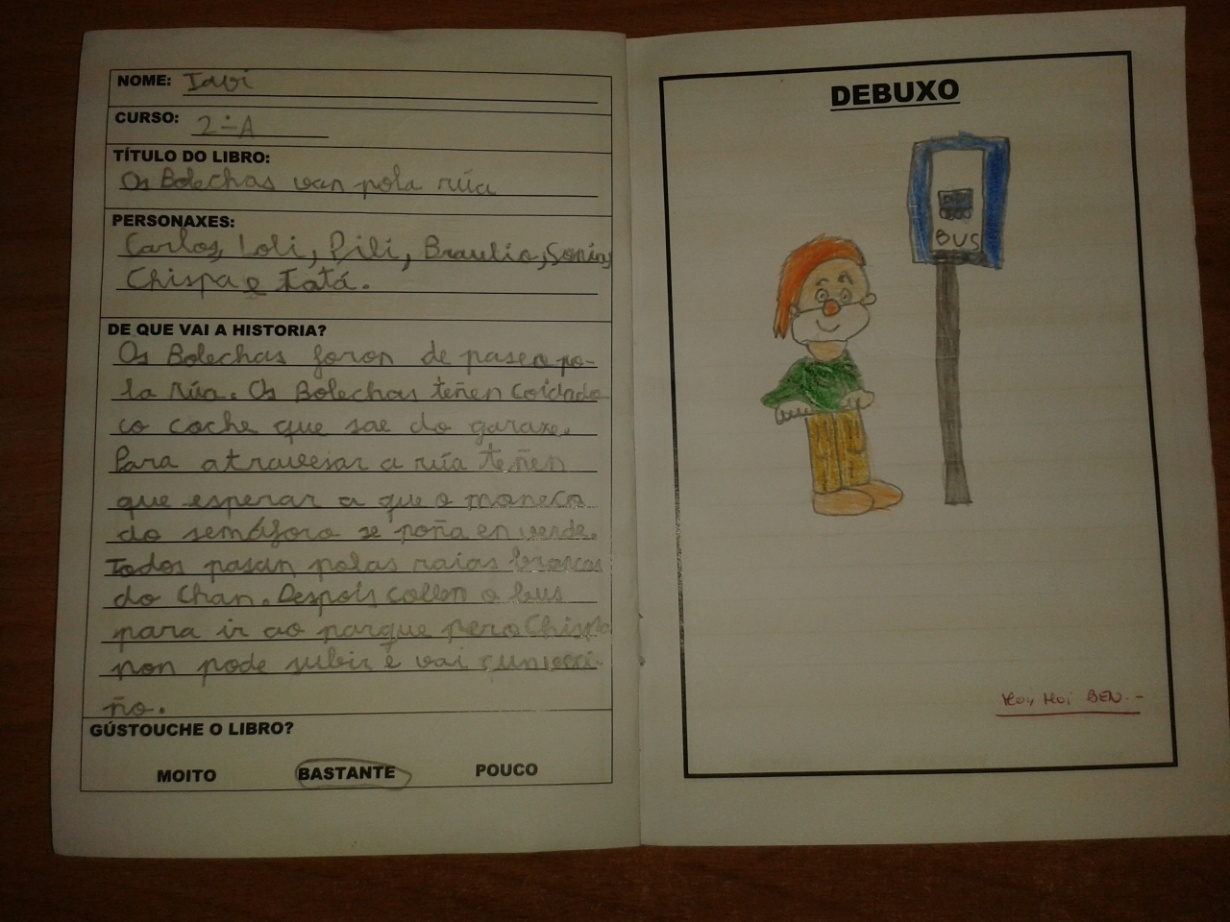 NOME: Iavi
CURSO: 2º A
TÍTULO DO LIBRO:
Os Bolechas van pola rúa
PERSONAXES:
Carlos, Loli, Pili, Braulio, Sonia,
Chispa e Tatá.
DE QUE VAI A HISTORIA?
Os Bolechas foron de paseo po-
la rúa. Os Bolechas teñen coidado
co coche que sae do garaxe.
Para atravesar a rúa teñen
que esperar a que o moneco
do semáforo se poña en verde.
Todos pasan polas raias brancas
do Chan. Despois collen o bus
para ir ao parque pero Chispa
non pode subir e vai
ño.
GÚSTOUCHE O LIBRO?
MOITO BASTANTE POUCO
DEBUXO
BUS
MOI BEN.-